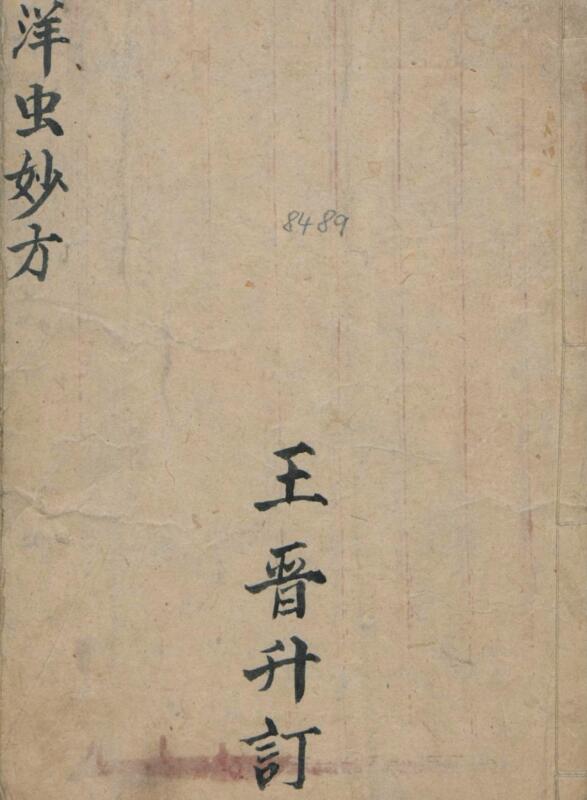 洋虫妙方
8489
王晉升訂